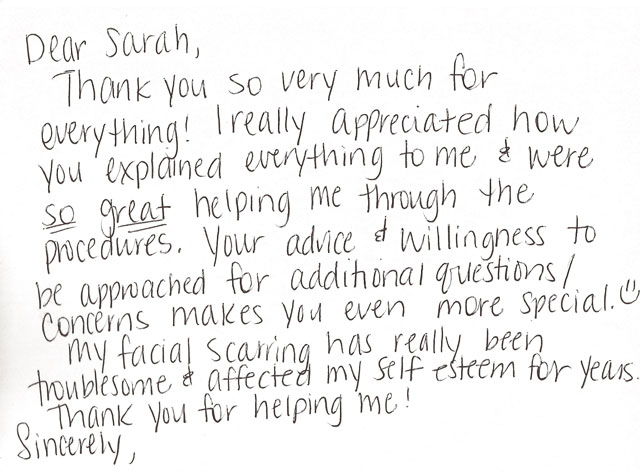 Dear Sarah,
Thank you so very much for
everything! I really appreciated how
you explained everything to me & were
so great helping me through the
procedures. Your advice & willingness to
be approached for additional questions/
concerns makes you even more special. ☺
My facial scarring has really been
troublesome & affected my self esteem for years.
Thank you for helping me!
Sincerely,